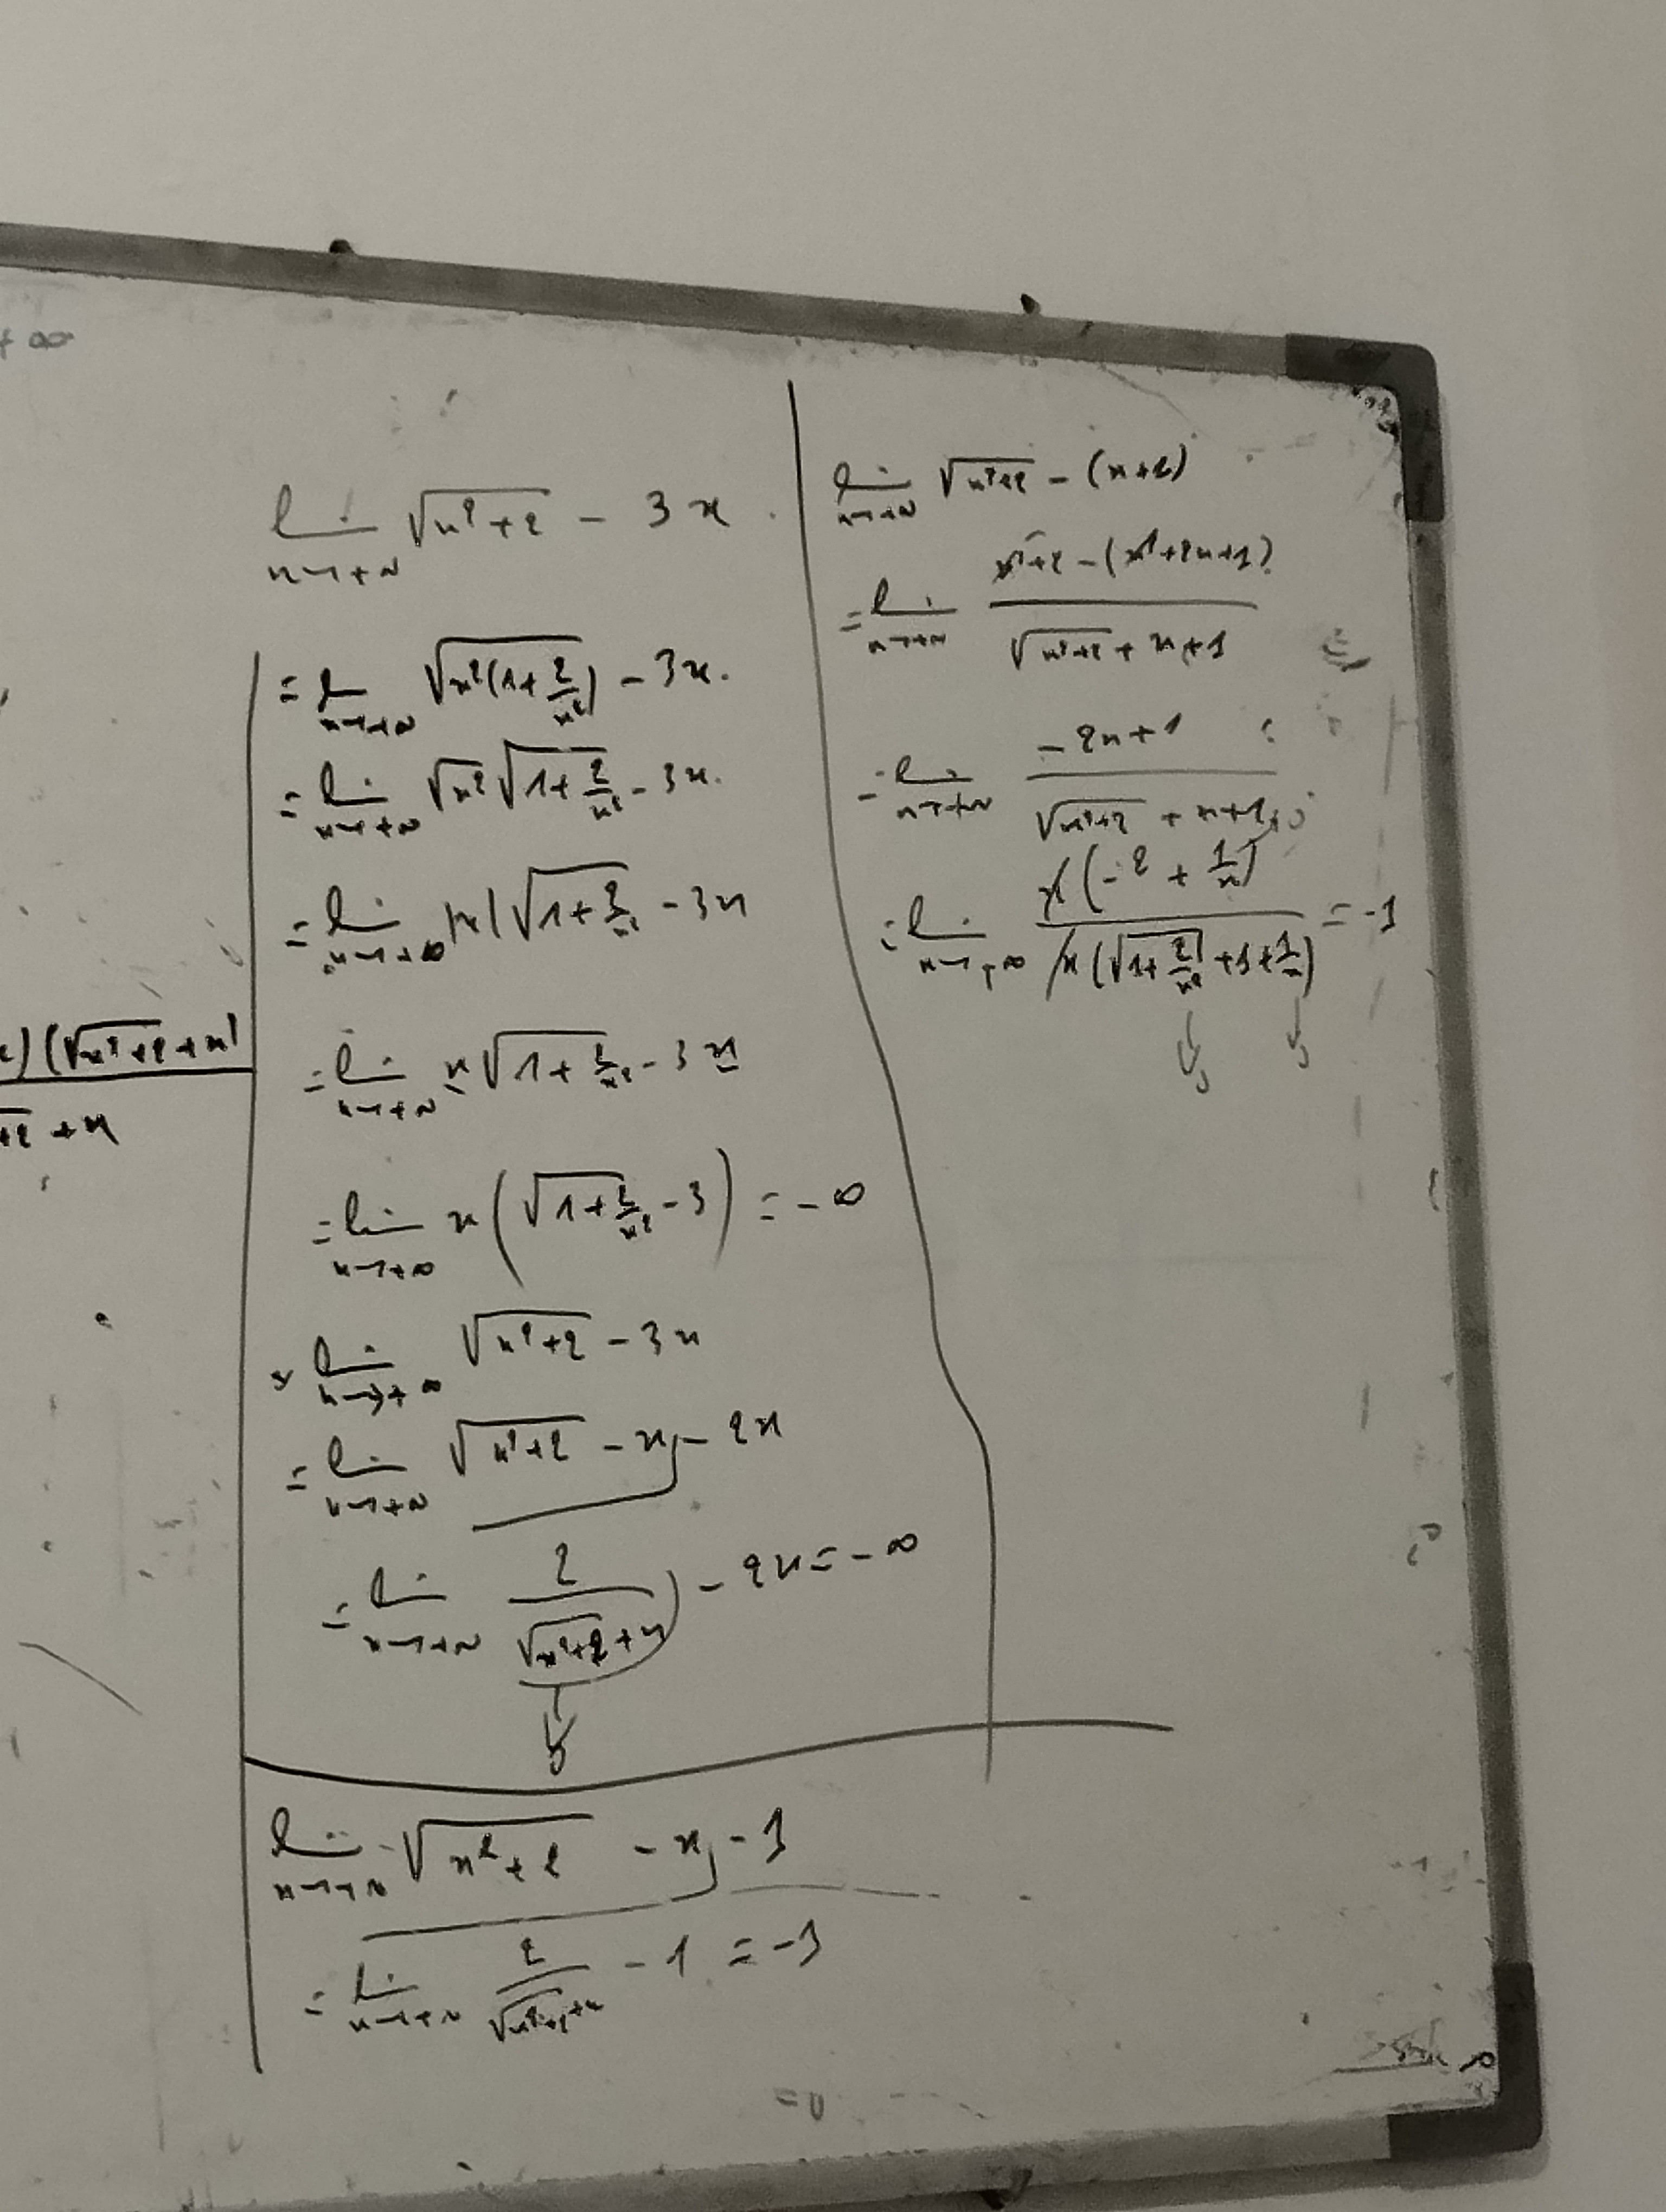 + ∞
lim x→+∞ √(x²+2) - 3x
= lim x→+∞ √(x²(1+2/x²)) - 3x.
= lim x→+∞ √x² √(1+2/x²) - 3x.
= lim x→+∞ |x| √(1+2/x²) - 3x
= lim x→+∞ x √(1+2/x²) - 3x
= lim x→+∞ x (√(1+2/x²) - 3) = -∞
lim x→+∞ √(x²+2) - 3x
= lim x→+∞ √(x²+2) - x - 2x
= lim x→+∞ 2/(√(x²+2)+x) - 2x = -∞
↓
0
) (√(x²+2)+x)
+2 + x
lim x→+∞ √(x²+2) - (x+1)
= lim x→+∞ (x²+2-(x²+2x+1))/(√(x²+2)+x+1)
= lim x→+∞ (-2x+1)/(√(x²+2)+x+1)
= lim x→+∞ x(-2+1/x)/(x(√(1+2/x²)+1+1/x)) = -1
↓ ↓
0 0
lim x→+∞ √(x²+2) - x - 1
= lim x→+∞ 2/(√(x²+2)+x) - 1 = -1
=0